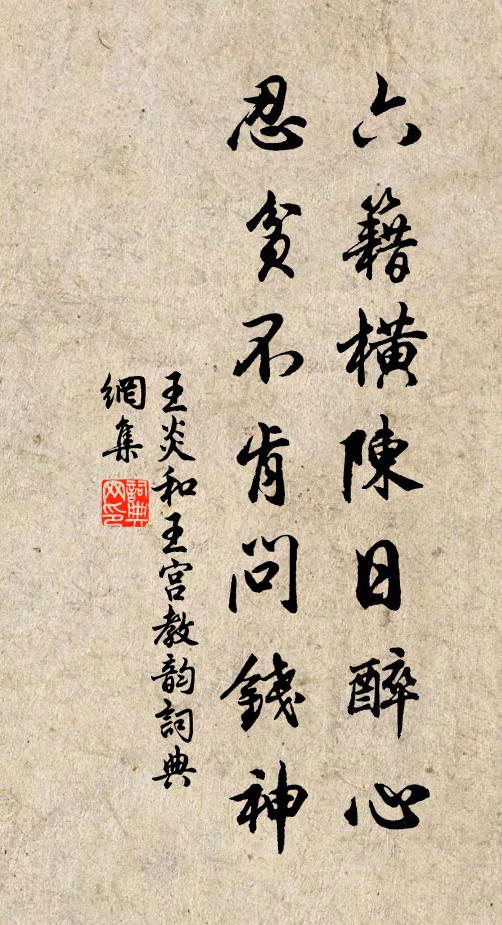 六籍橫陳日醉心
忍貧不肯問錢神
王炎和王宫教韵詞典
網集
詞典网印